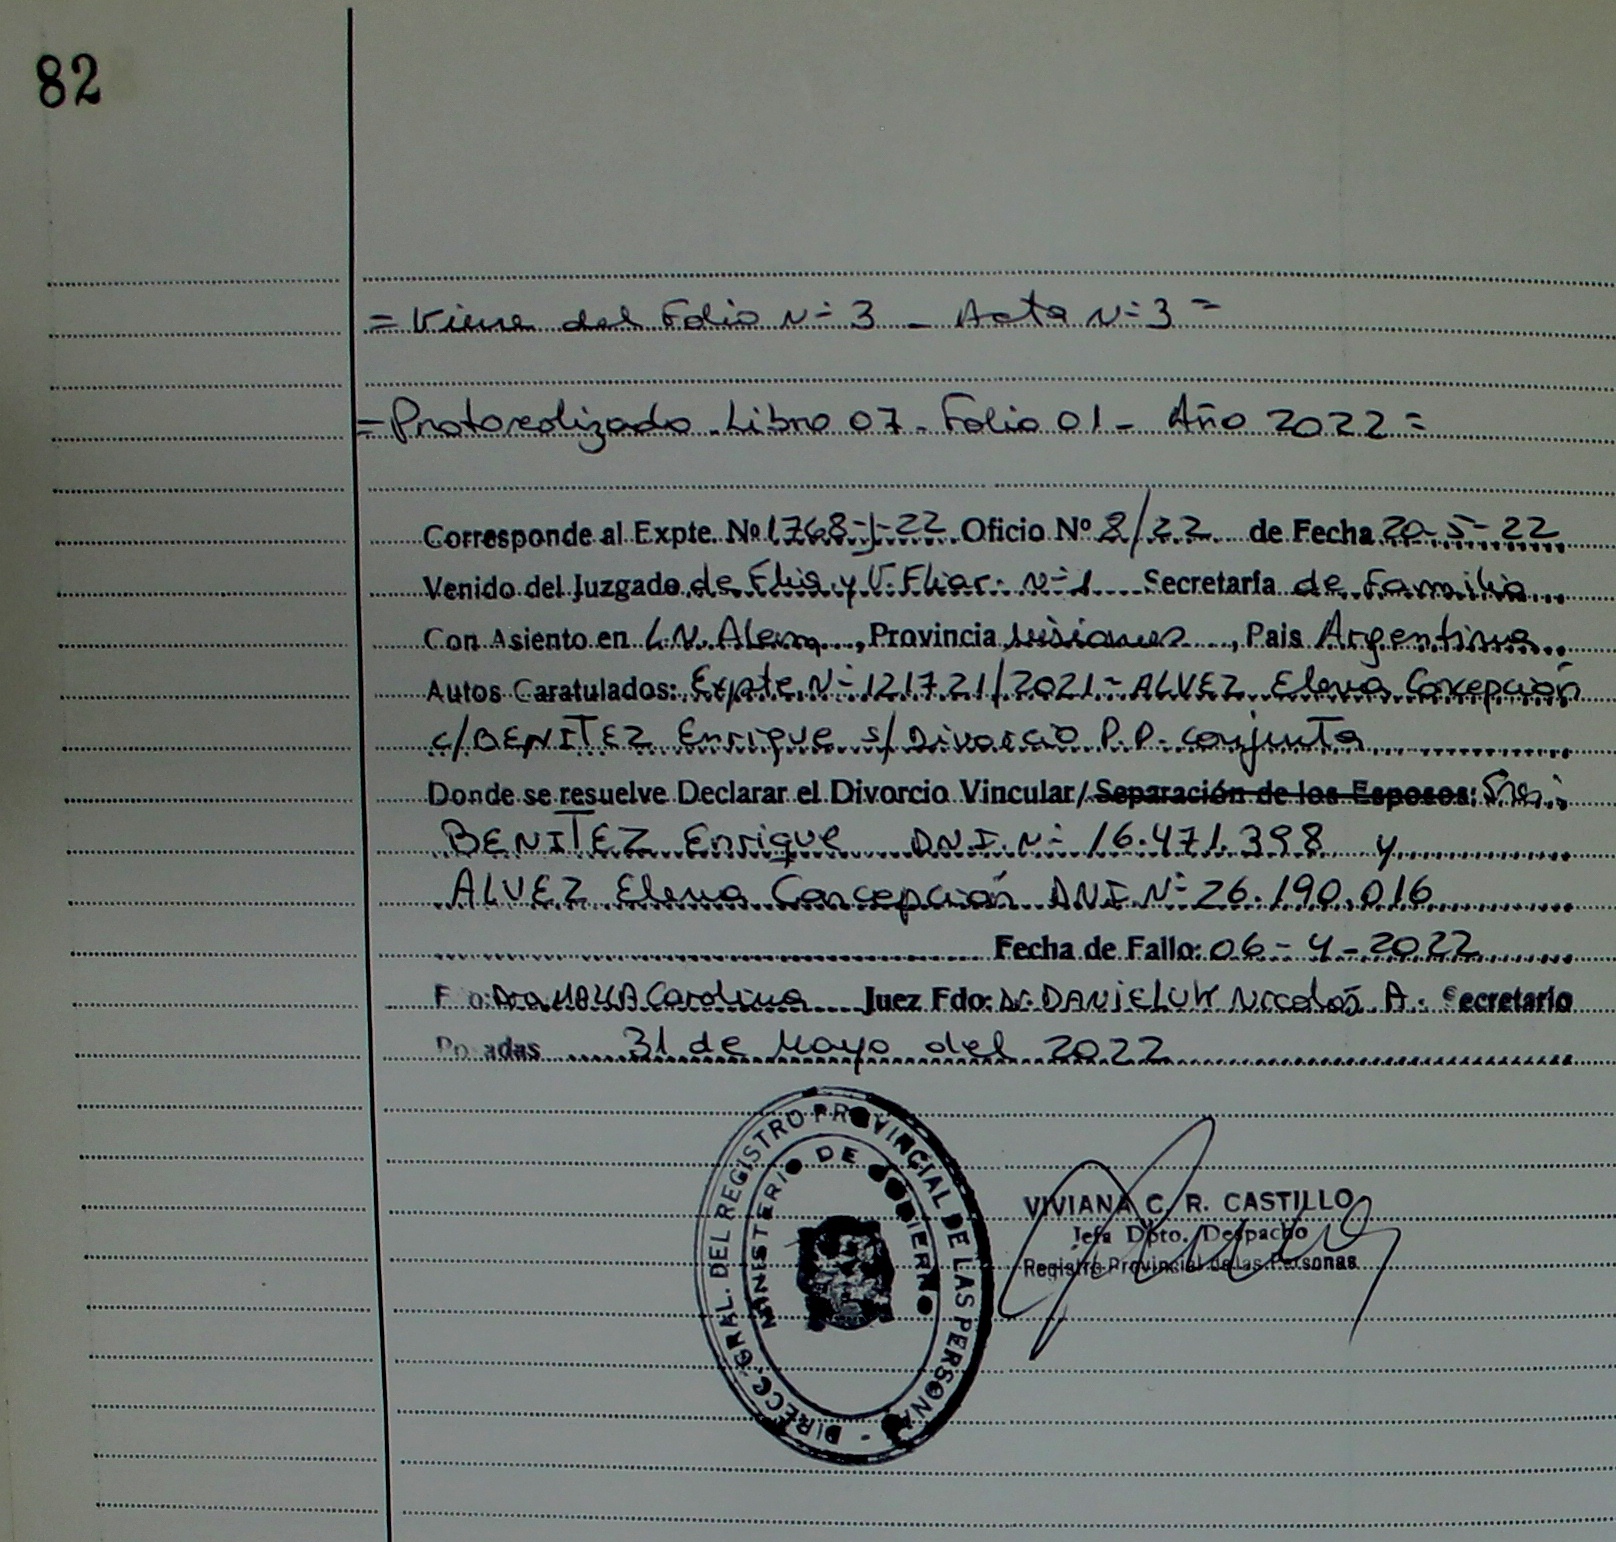 82
= Viene del Folio N° 3 - Acta N° 3 =
= Protocolizado Libro 07 - Folio 01 - Año 2022 =
Corresponde al Expte. Nº 1768-J-22 Oficio Nº 2/22 de Fecha 20-5-22
Venido del Juzgado de Flia y V. Fliar. N° 1 Secretaría de Familia
Con Asiento en L.N. Alem, Provincia Misiones, Pais Argentina
Autos Caratulados: Expte. N° 121721/2021 - ALVEZ Elena Concepción
c/ BENITEZ Enrique s/ Divorcio P.P. conjunta
Donde se resuelve Declarar el Divorcio Vincular/ Separación de los Esposos:
BENITEZ Enrique D.N.I. N° 16.471.398 y
ALVEZ Elena Concepción DNI N° 26.190.016
Fecha de Fallo: 06-4-2022
Fdo: Dra Carolina Juez Fdo: Dr. DANIELUK Nicolás A. Secretario
Posadas 31 de Mayo del 2022
DIRECC. GRAL. DEL REGISTRO PROVINCIAL DE LAS PERSONAS -
MINISTERIO DE GOBIERNO
VIVIANA C. R. CASTILLO
Jefa Dpto. Despacho
Registro Provincial de las Personas